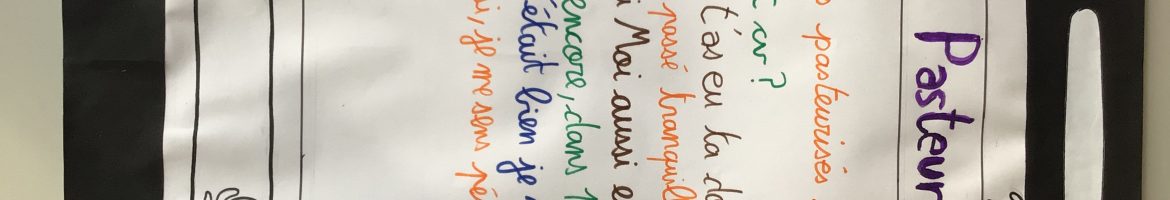 Pasteur
pasteurisés
cv ?
t'as eu ta
passé tranquil
Moi aussi e
encore, dans
était bien je
i, je me sens pé